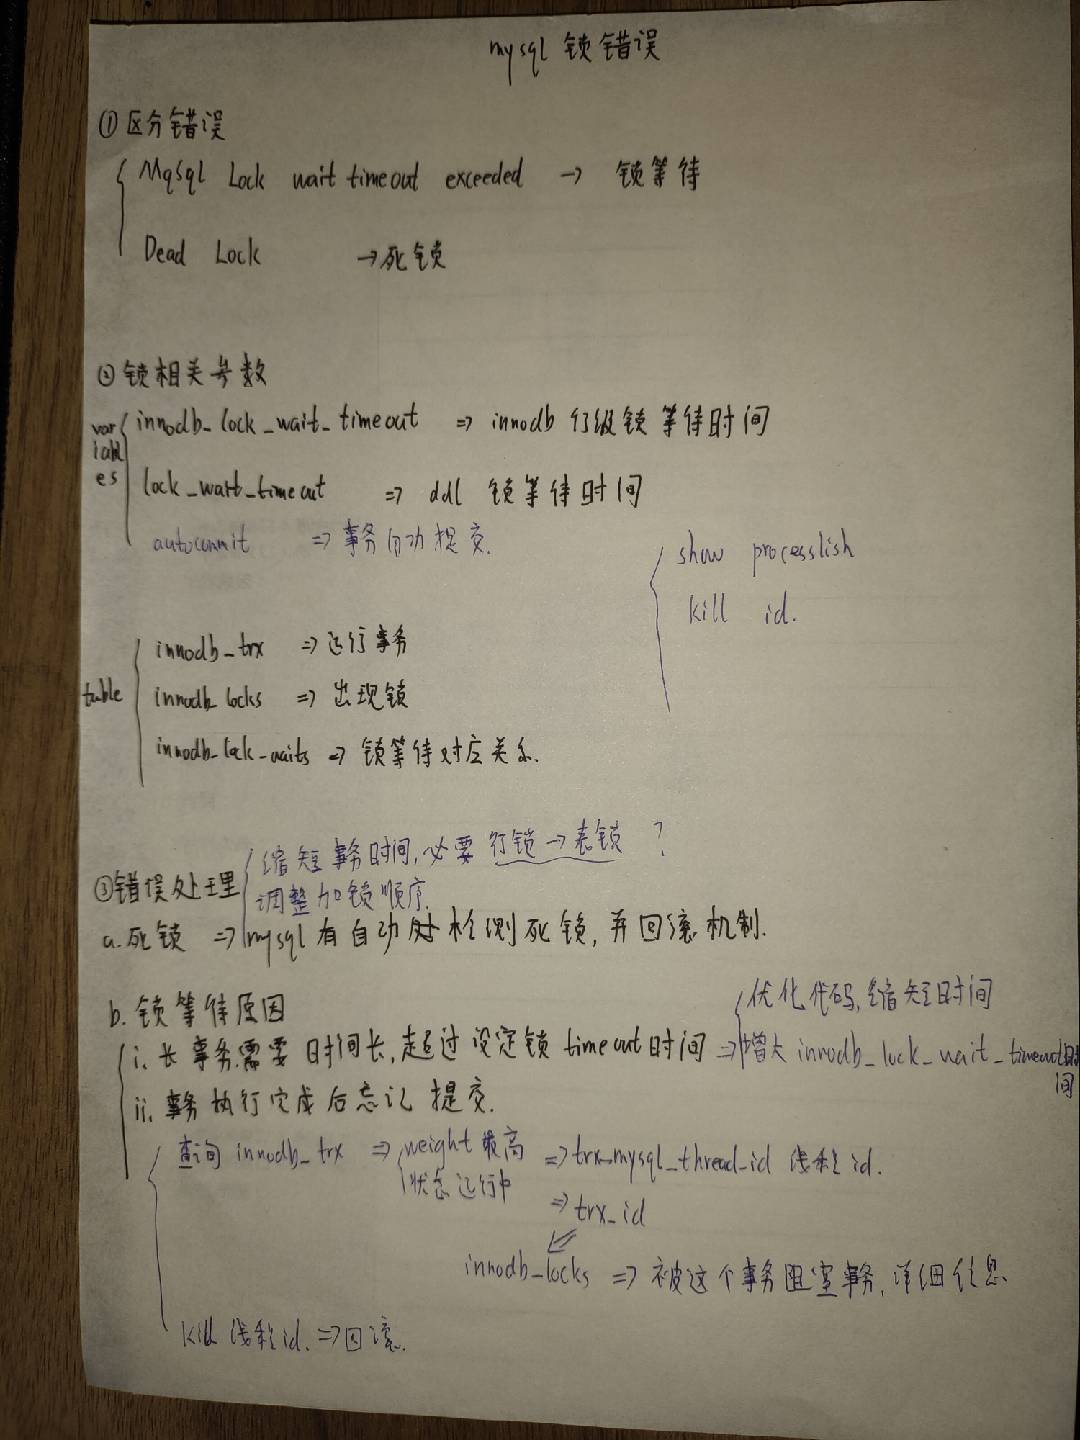 mysql 锁错误
① 区分错误
Mysql Lock wait timeout exceeded → 锁等待
Dead Lock → 死锁
② 锁相关参数
variables
innodb_lock_wait_timeout => innodb 行级锁等待时间
lock_wait_timeout => ddl 锁等待时间
autocommit => 事务自动提交.
show processlish
kill id.
table
innodb_trx => 运行事务
innodb_locks => 出现锁
innodb_lock_waits => 锁等待对应关系.
③ 错误处理
缩短事务时间, 必要 行锁→表锁 ?
调整加锁顺序.
a. 死锁 => mysql 有自动 检测死锁, 并回滚机制.
b. 锁等待原因
i. 长事务需要时间长, 超过设定锁 timeout 时间 =>
优化代码, 缩短时间
增大 innodb_lock_wait_timeout时间
ii. 事务执行完成后忘记提交.
查询 innodb_trx => weight 最高 => trx_mysql_thread_id 线程 id.
状态运行中 => trx_id
innodb_locks => 被这个事务阻塞事务, 详细信息.
kill 线程id. => 回滚.